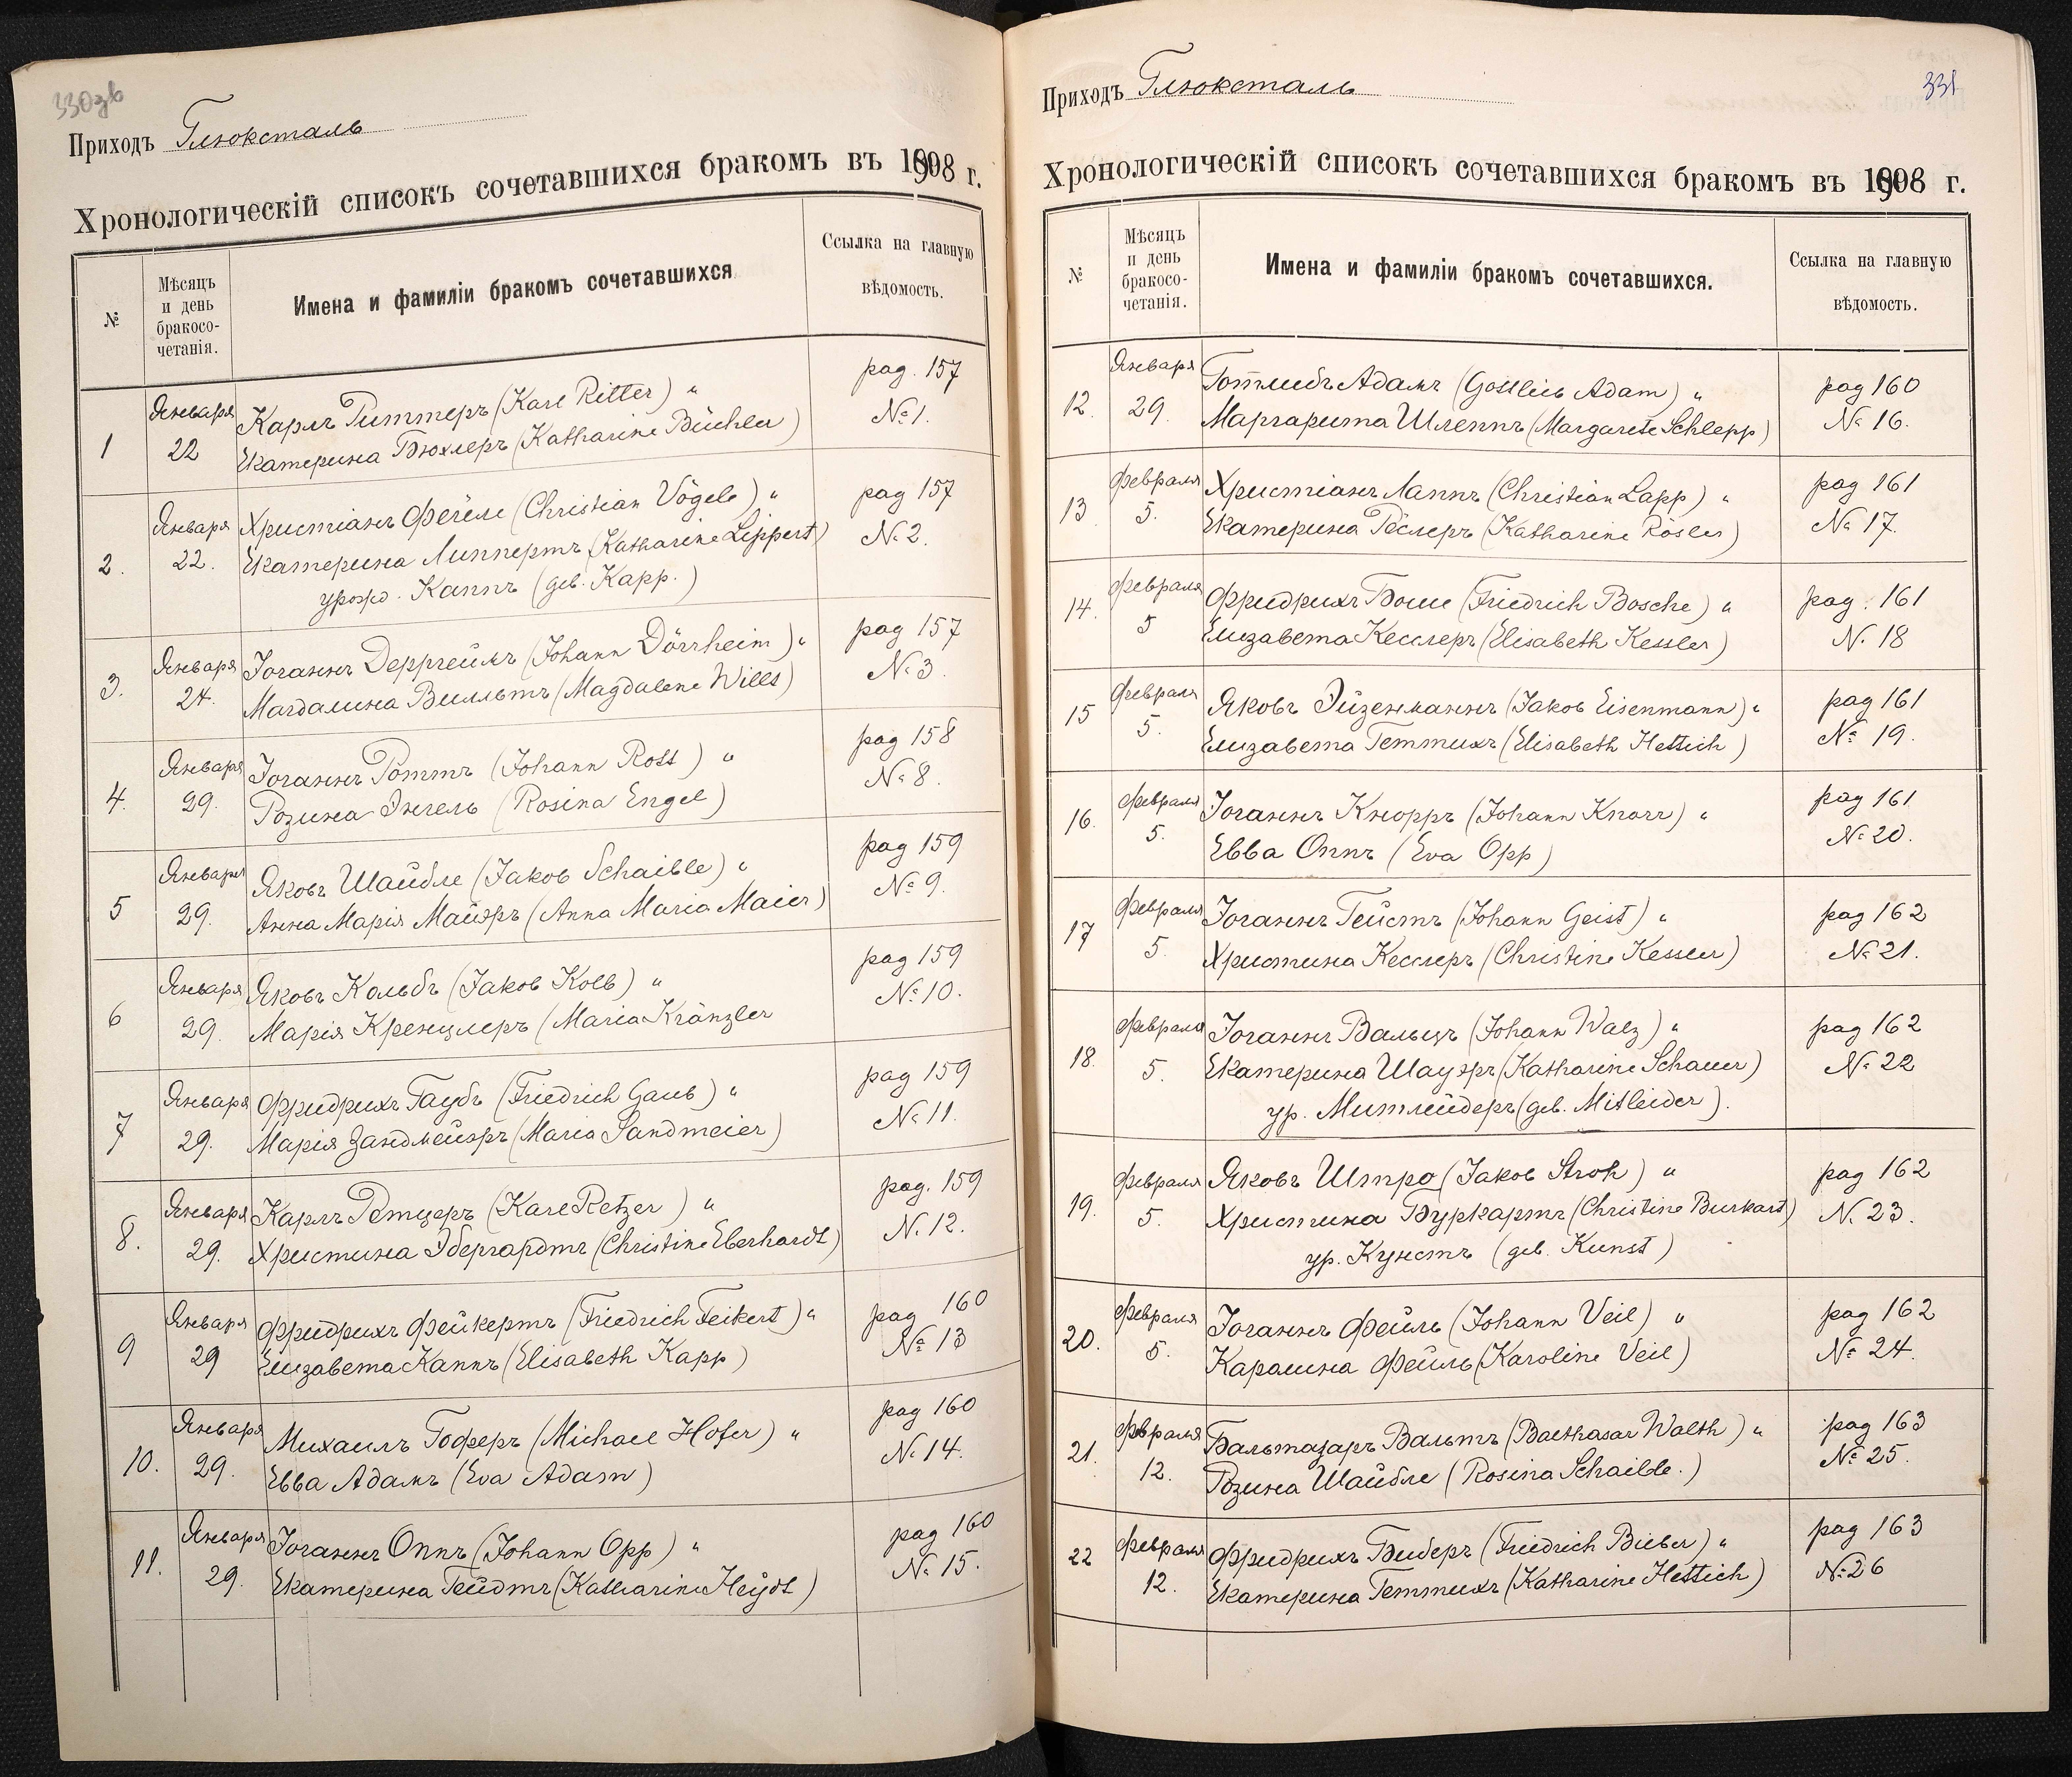 330зв
Приходъ Глюксталь
Хронологическій списокъ сочетавшихся бракомъ въ 1908 г.
№
Мѣсяцъ
и день
бракосо-
четанія.
Имена и фамиліи бракомъ сочетавшихся
Ссылка на главную
вѣдомость.
1
Января
22
Карлъ Риттеръ (Karl Ritter) „
Екатерина Бюхлеръ (Katharine Büchler)
pag. 157
№ 1.
2.
Января
22.
Христіанъ Фегеле (Christian Vögele) „
Екатерина Липпертъ (Katharine Lippert)
урожд. Каппъ (geb. Kapp.)
pag 157
№ 2.
3.
Января
24.
Іоганнъ Дерргеймъ (Johann Dörrheim) „
Магдалина Вилльтъ (Magdalene Willt)
pag 157
№ 3.
4.
Января
29.
Іоганнъ Роттъ (Johann Rott) „
Розина Энгель (Rosina Engel)
pag 158
№ 8.
5
Января
29.
Яковъ Шайбле (Jakob Schaible) „
Анна Марія Майэръ (Anna Maria Maier)
pag 159
№ 9.
6
Января
29.
Яковъ Кольбъ (Jakob Kolb) „
Марія Кренцлеръ (Maria Kränzler
pag 159
№ 10.
7
Января
29.
Фридрихъ Гаубъ (Friedrich Gaub) „
Марія Зандмейэръ (Maria Sandmeier)
pag 159
№ 11.
8.
Января
29.
Карлъ Ретцеръ (Karl Retzer) „
Христина Эбергардтъ (Christine Eberhardt)
pag. 159
№ 12.
9
Января
29
Фридрихъ Фейкертъ (Friedrich Feikert) „
Елизавета Каппъ (Elisabeth Kapp)
pag 160
№ 13
10.
Января
29.
Михаилъ Гоферъ (Michael Hofer) „
Евва Адамъ (Eva Adam)
pag 160
№ 14.
11.
Января
29.
Іоганнъ Оппъ (Johann Opp) „
Екатерина Гейдтъ (Katharine Heydt)
pag 160
№ 15.
331
Приходъ Глюксталь
Хронологическій списокъ сочетавшихся бракомъ въ 1908 г.
№
Мѣсяцъ
и день
бракосо-
четанія.
Имена и фамиліи бракомъ сочетавшихся.
Ссылка на главную
вѣдомость.
12.
Января
29.
Готлибъ Адамъ (Gottlieb Adam) „
Маргарита Шлеппъ (Margarete Schlepp)
pag 160
№ 16.
13
Февраля
5.
Христіанъ Лаппъ (Christian Lapp) „
Екатерина Рёслеръ (Katharine Rösler)
pag 161
№ 17.
14.
Февраля
5
Фридрихъ Боше (Friedrich Bosche) „
Елизавета Кесслеръ (Elisabeth Kessler)
pag. 161
№. 18
15
Февраля
5.
Яковъ Эйзенманнъ (Jakob Eisenmann) „
Елизавета Геттихъ (Elisabeth Hettich)
pag 161
№ 19.
16.
Февраля
5.
Іоганнъ Кнорръ (Johann Knorr) „
Евва Оппъ (Eva Opp)
pag 161
№ 20.
17
Февраля
5.
Іоганнъ Гейстъ (Johann Geist) „
Христина Кесслеръ (Christine Kessler)
pag 162
№ 21.
18.
Февраля
5.
Іоганнъ Вальцъ (Johann Walz) „
Екатерина Шауэръ (Katharine Schauer)
ур. Митлейдеръ (geb. Mitleider).
pag 162
№ 22
19.
Февраля
5.
Яковъ Штро (Jakob Stroh) „
Христина Буркартъ (Christine Burkart)
ур. Кунстъ (geb. Kunst)
pag 162
№ 23.
20.
Февраля
5.
Іоганнъ Фейль (Johann Veil) „
Каролина Фейль (Karoline Veil)
pag 162
№ 24.
21.
Февраля
12.
Бальтазаръ Вальтъ (Balthasar Walth) „
Розина Шайбле (Rosina Schaible.)
pag 163
№ 25.
22
Февраля
12.
Фридрихъ Биберъ (Friedrich Bieber) „
Екатерина Геттихъ (Katharine Hettich)
pag 163
№ 26